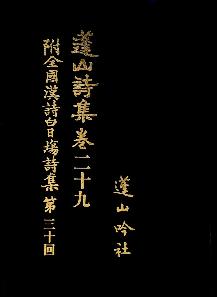 蓬山詩集卷二十九
附全國漢詩白日場詩集 第三十回
蓬山吟社